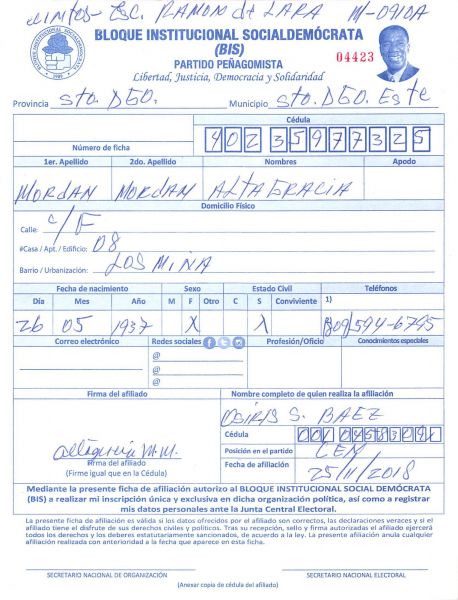 Esc. RAMON de LARA M-0910A
BLOQUE INSTITUCIONAL SOCIALDEMÓCRATA
(BIS)
PARTIDO PEÑAGOMISTA
04423
Libertad, Justicia, Democracia y Solidaridad
Provincia Sto. DGO. Municipio Sto. DGO. Este
Cédula
Número de ficha 402 3597732 5
1er. Apellido 2do. Apellido Nombres Apodo
MORDAN MORDAN ALTAGRACIA
Domicilio Físico
Calle: C/F
#Casa / Apt. / Edificio: 08
Barrio / Urbanización: LOS MINA
Fecha de nacimiento Sexo Estado Civil Teléfonos
Día Mes Año M F Otro C S Conviviente 1)
26 05 1937 X X (809) 594-6795
Correo electrónico Redes sociales Profesión/Oficio Conocimientos especiales
@
@
@
Firma del afiliado Nombre completo de quien realiza la afiliación
OSIRIS S. BAEZ
Cédula 001
Altagracia M.M. Posición en el partido CEN
Firma del afiliado
(Firme igual que en la Cédula) Fecha de afiliación 25/11/2018
Mediante la presente ficha de afiliación autorizo al BLOQUE INSTITUCIONAL SOCIAL DEMÓCRATA
(BIS) a realizar mi inscripción única y exclusiva en dicha organización política, así como a registrar
mis datos personales ante la Junta Central Electoral.
La presente ficha de afiliación es válida si los datos ofrecidos por el afiliado son correctos, las declaraciones veraces y si el
afiliado tiene el disfrute de sus derechos civiles y políticos. Tras su recepción, sello y firma autorizada el afiliado ejercerá
todos los derechos y los deberes estatutariamente sancionados, de acuerdo a la ley. La presente afiliación anula cualquier
afiliación realizada con anterioridad a la fecha que aparece en esta ficha.
SECRETARIO NACIONAL DE ORGANIZACIÓN SECRETARIO NACIONAL ELECTORAL
(Anexar copia de cédula del afiliado)